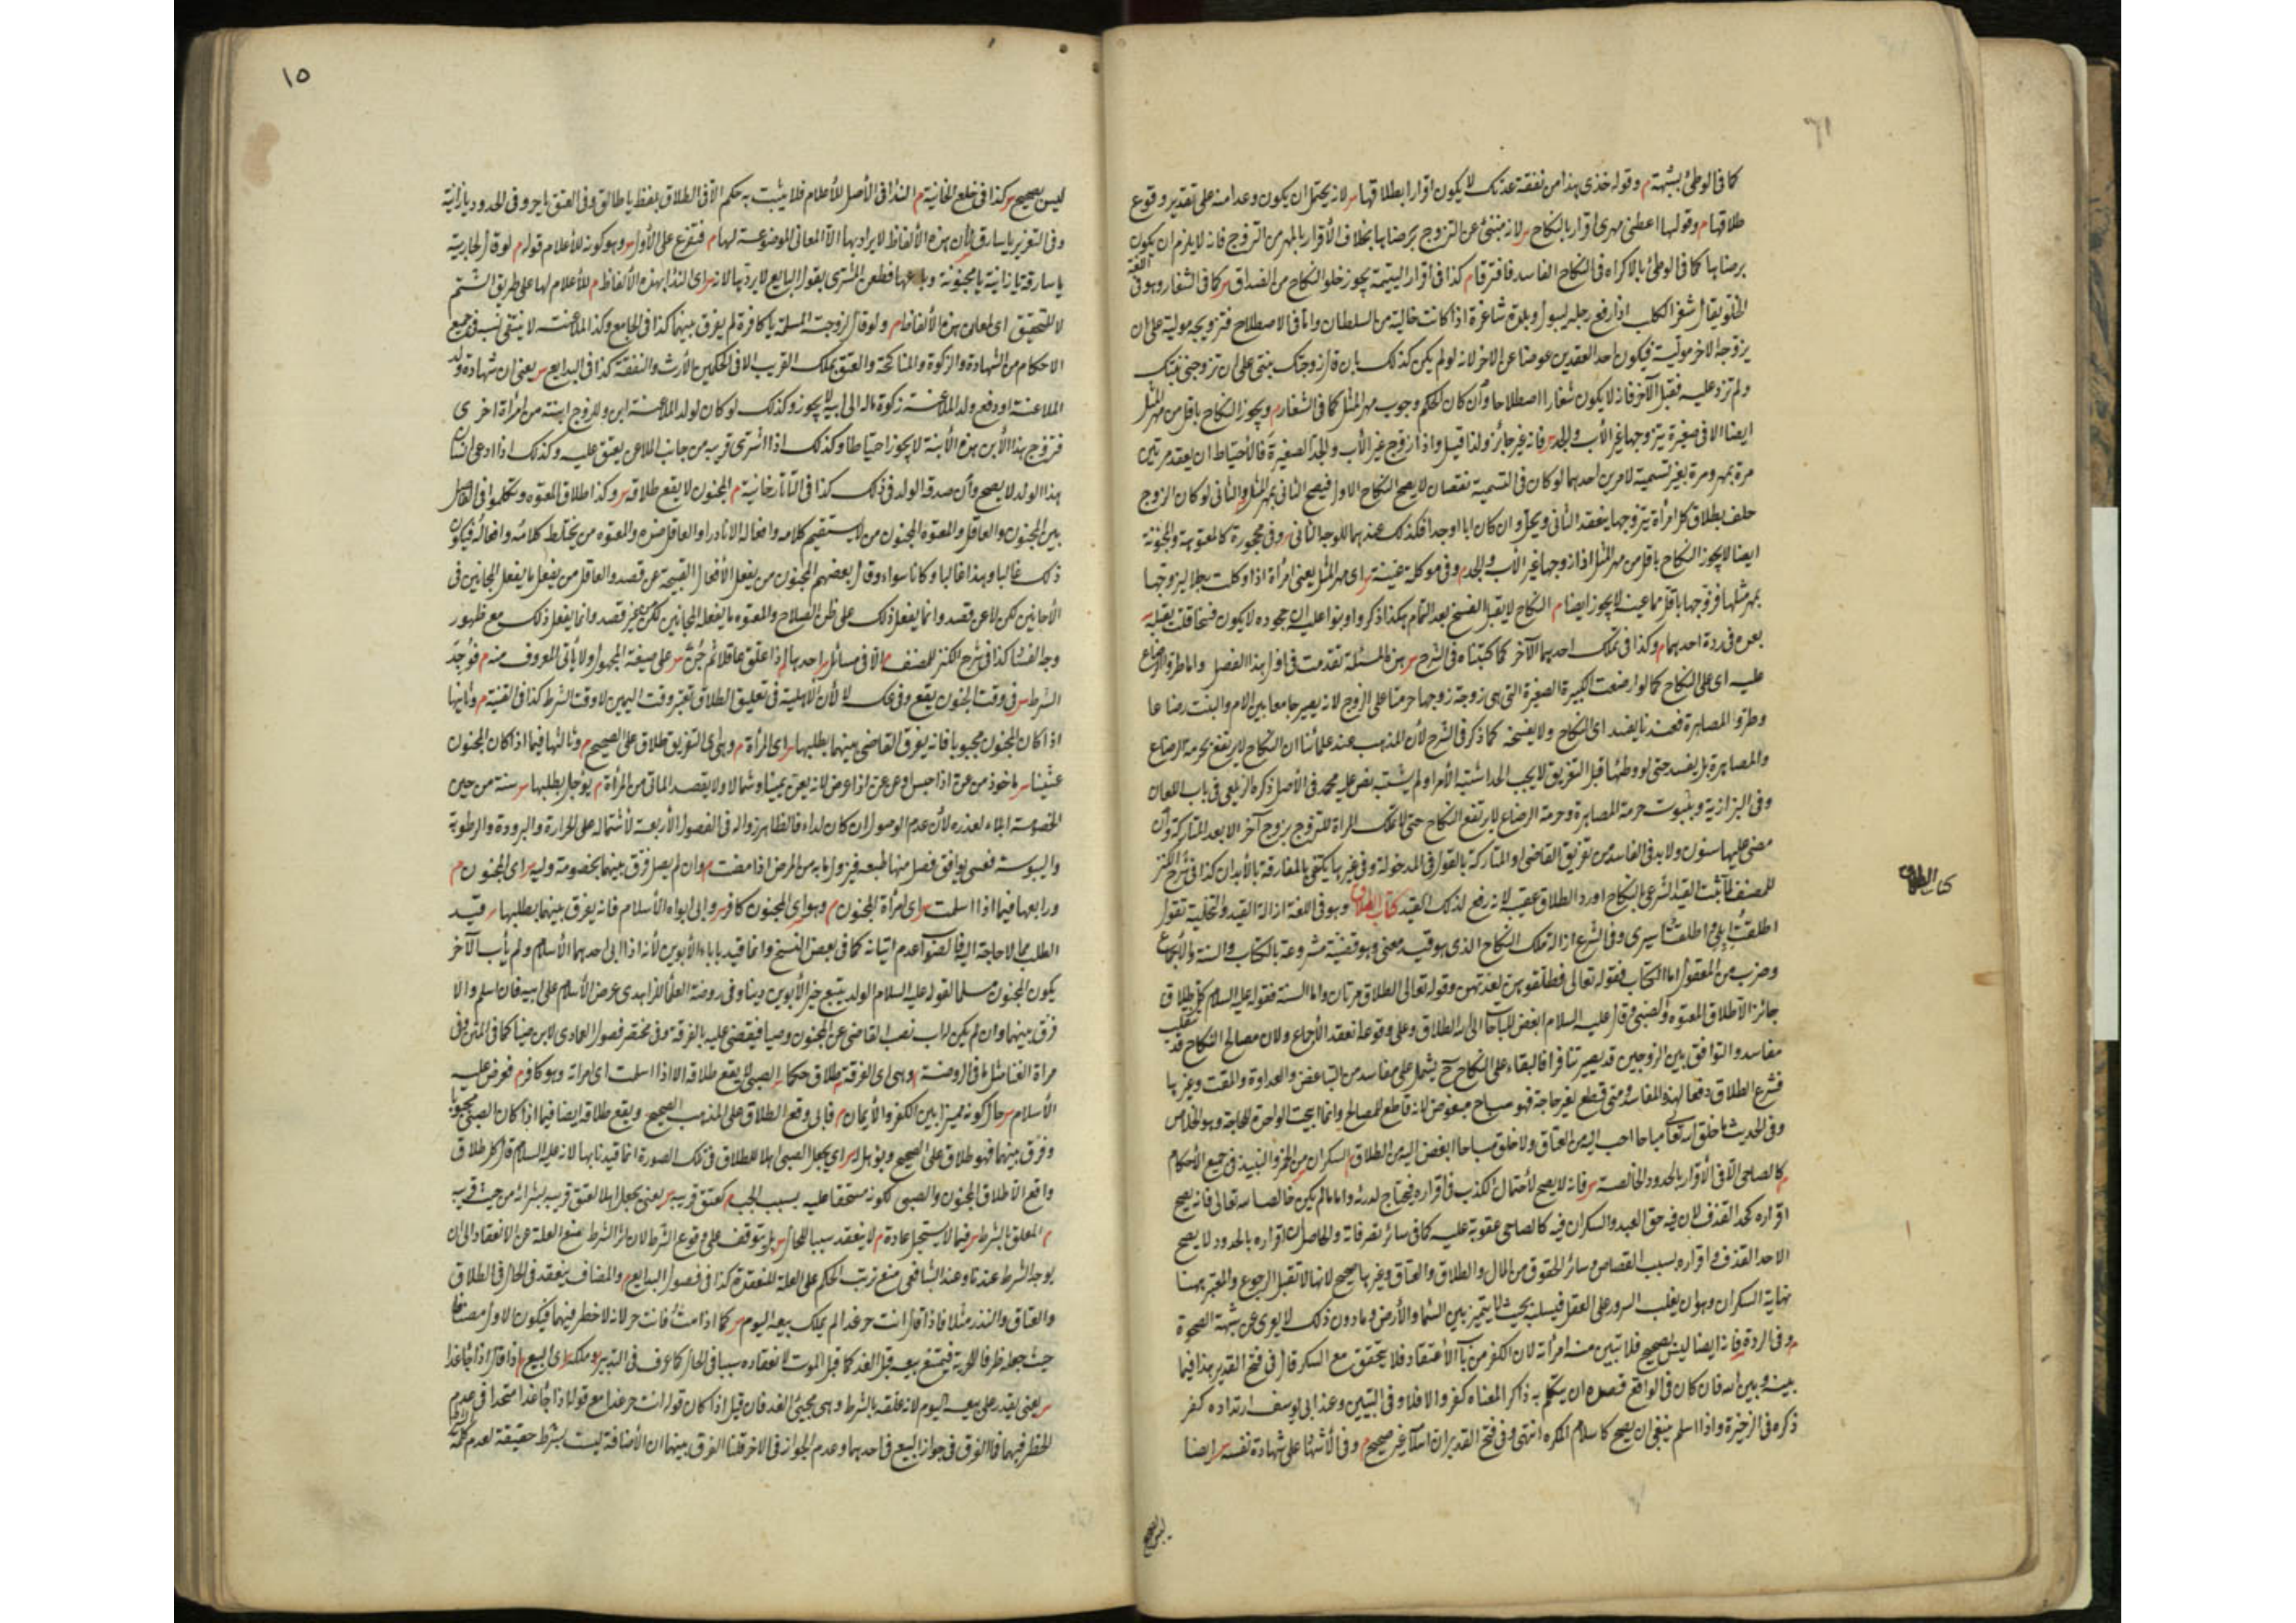 ٦١
كما في الوطئ بشبهة م وقوله خذي هذا من نفقة عدتك لا يكون اقرارا بطلاقها س لانه يحتمل ان يكون وعدا منه على تقدير وقوع
طلاقها م وقولها اعطني مهري اقرار بالنكاح س لانه مبنئ عن التزوج برضاها بخلاف الأقرار بالمهر من التزوج فانه لا يلزم ان يكون
برضاها كما في الوطئ بالاكراه في النكاح الفاسد فافترقا م كذا في اقرار اليتيمة يجوز خلو النكاح من الصداق س كما في الشغار وهو في اللغة
الخلو يقال شغر الكلب اذا رفع رجله ليبول وبلدة شاغرة اذا كانت خالية من السلطان واما في الاصطلاح فتزويجه موليته على ان
يزوجه الاخر موليته فيكون احد العقدين عوضا عن الاخر لانه لو لم يكن كذلك بان قال زوجتك بنتي على ان تزوجني بنتك
ولم تزد عليه فقبل الآخر فانه لا يكون شغارا اصطلاحا وأن كان الحكم وجوب مهر المثل كما في الشغار م ويجوز النكاح باقل من مهر المثل
ايضا الا في صغيرة يتزوجها غير الأب والجد س فانه غير جائز ولذا قيل واذا زوج غير الأب والجد الصغيرة فالأحتياط ان يعقد مرتين
مرة بمهر ومرة بغير تسمية لامرين احدهما لو كان في التسمية نقصان لا يصح النكاح الاول فيصح الثاني بمهر المثل والثاني لو كان الزوج
حلف بطلاق كل امرأة يتزوجها ينعقد الثاني ويحل وان كان ابا او جدا فكذلك عندهما للوجه الثاني س وفي محجورة كالمعتوهة والمجنونة
ايضا لا يجوز النكاح باقل من مهر المثل اذا زوجها غير الأب والجد م وفي موكلة عينته س اى مهر المثل يعني امرأة اذا وكلت رجلا ليزوجها
بمهر مثلها فزوجها باقل مما عينت لا يجوز ايضا م النكاح لا يقبل الفسخ بعد التمام هكذا ذكروا وبنوا عليه ان جحوده لا يكون فسخا قلت يقبله
بعده في ردة احدهما م وكذا في تملك احدهما الآخر كما كتبناه في الشرح س هذه المسئلة تقدمت في اول هذا الفصل واما طرو الرضاع
عليه اى على النكاح كما لو ارضعت الكبيرة الصغيرة التي هي زوجة زوجها حرمتا على الزوج لانه يصير جامعا بين الام والبنت رضاعا
وطرو المصاهرة فعندنا يفسد اى النكاح ولا يفسخه كما ذكر في الشرح لأن المذهب عند علمائنا ان النكاح لا يرتفع بحرمة الرضاع
والمصاهرة بل يفسد حتى لو وطئها قبل التفريق لا يجب الحد اشتبه الأمر او لم يشتبه نص عليه محمد في الأصل ذكره الزيلعي في باب اللعان
وفي البزازية وبثبوت حرمة المصاهرة وحرمة الرضاع لا يرتفع النكاح حتى لا تملك المرأة التزوج بزوج آخر الا بعد المتاركة وأن
مضى عليها سنون ولا بد في الفاسد من تفريق القاضي او المتاركة بالقول في المدخولة وفي غيرها يكتفي بالمفارقة بالأبدان كذا في شرح الكنز
للمصنف لما ثبت القيد الشرعي بالنكاح اورد الطلاق عقيبه لانه رفع لذلك القيد كتاب الطلاق وهو في اللغة ازالة القيد والتخلية تقول
اطلقت ابلي واطلقت اسيرى وفي الشرع ازالة ملك النكاح الذي هو قيد معنى وهو قضية مشروعة بالكتاب والسنة والأجماع
وضرب من المعقول اما الكتاب فقوله تعالى فطلقوهن لعدتهن وقوله تعالى الطلاق مرتان واما السنة فقوله عليه السلام كل طلاق
جائز الا طلاق المعتوه والصبي وقال عليه السلام ابغض المباحات الى الله الطلاق وعلى وقوعه انعقد الأجماع ولان مصالح النكاح قد تنقلب
مفاسد والتوافق بين الزوجين قد يصير تنافرا فالبقاء على النكاح ح يشتمل على مفاسد من التباغض والعداوة والمقت وغيرها
فشرع الطلاق دفعا لهذه المفاسد ومتى قطع لغير حاجة فهو مباح مبغوض لانه قاطع للمصالح وانما ابيحت الواحدة للحاجة وهو الخلاص
وفي الحديث ما خلق الله تعالى مباحا احب اليه من العتاق ولا خلق مباحا ابغض اليه من الطلاق م السكران من الخمر والنبيذ في جميع الأحكام
كالصاحي الا في الأقرار بالحدود الخالصة س فانه لا يصح لأحتمال الكذب في اقراره فيحتاج لدرئه واما ما لم يكن خالصا لله تعالى فانه يصح
اقراره كحد القذف لان فيه حق العبد والسكران فيه كالصاحي عقوبة عليه كما في سائر تصرفاته والحاصل ان اقراره بالحدود لا يصح
الا حد القذف واقراره بسبب القصاص وسائر الحقوق من المال والطلاق والعتاق وغيرها صحيح لانها لا تقبل الرجوع والمعتبر هنا
نهاية السكران وهو ان يغلب السرور على العقل فيسلبه بحيث لا يتميز بين السماء والأرض وما دون ذلك لا يعرى عن شبهة الصحوة
م وفي الردة فانه ايضا ليس بصحيح فلا تبين منه امرأته لان الكفر من باب الأعتقاد فلا يتحقق مع السكر قال في فتح القدير هذا فيما
بينه وبين الله فان كان في الواقع قصده ان يتكلم به ذاكرا لمعناه كفر والا فلا وفي التبيين وعند ابي يوسف ارتداده كفر
ذكره في الذخيرة واذا اسلم ينبغي ان يصح كاسلام المكره انتهى وفي فتح القدير ان اسلامه غير صحيح م وفي الأشهاد على شهادة نفسه س ايضا
ليس بصحيح
كتاب الطلاق
١٥
ليس بصحيح س كذا في خلع الخانية م النداء في الأصل للأعلام فلا يثبت به حكم الا في الطلاق بلفظ يا طالق وفي العتق يا حر وفي الحدود يا زانية
وفي التعزير يا سارق لأن هذه الألفاظ لا يراد بها الا المعاني الموضوعة لها م فتفرع على الأول س وهو كونه للأعلام قوله م لو قال لجاريته
يا سارقة يا زانية يا مجنونة وباعها فطعن المشترى بقول البايع لا يردها لانه س اى النداء بهذه الألفاظ م للأعلام لها على طريق الشتم
لا للتحقيق اى لمعاني هذه الألفاظ م ولو قال لزوجته المسلمة يا كافرة لم يفرق بينهما كذا في الجامع وكذا الملاعنة لا ينتفي نسبه في جميع
الاحكام من الشهادة والزكوة والمناكحة والعتق بملك القريب الا في الحكمين الأرث والنفقة كذا في البدايع س يعني ان شهادة ولد
الملاعنة او دفع ولد الملاعنة زكوة ماله الى ابيه لا يجوز وكذلك لو كان لولد الملاعنة ابن وللزوج ابنة من امرأة اخرى
فتزوج هذا الأبن هذه الأبنة لا يجوز احتياطا وكذلك اذا اشترى قريبه من جانب الملاعن يعتق عليه وكذلك اذا ادعى انسان
هذا الولد لا يصح وأن صدقه الولد في ذلك كذا في التاتارخانية م المجنون لا يقع طلاقه س وكذا طلاق المعتوه وتكلموا في الفاصل
بين المجنون والعاقل والمعتوه المجنون من لا يستقيم كلامه وافعاله الا نادرا والعاقل ضده والمعتوه من يختلط كلامه وافعاله فيكون
ذلك غالبا وهذا غالبا وكانا سواء وقال بعضهم المجنون من يفعل الأفعال القبيحة عن قصد والعاقل من يفعل ما يفعل المجانين في
الأحايين لكن لا عن قصد وانما يفعل ذلك على ظن الصلاح والمعتوه ما يفعله المجانين لكن بغير قصد وانما يفعل ذلك مع ظهور
وجه الفساد كذا في شرح الكنز للمصنف م الا في مسائل س احديها م اذا علق عاقلا ثم جُنّ س على صيغة المجهول ولا يأتي المعروف منه م فوُجِدَ
الشرط س في وقت الجنون يقع وفي عكسه لا لأن الأهلية في تعليق الطلاق تعتبر وقت اليمين لا وقت الشرط كذا في القنية م وثانيها
اذا كان المجنون مجبوبا فانه يفرق القاضي بينهما بطلبها س اى المرأة م وهي اى التفريق طلاق على الصحيح م وثالثها فيما اذا كان المجنون
عنينا س مأخوذ من عن اذا حبس او عن عن اذا عرض لانه يعن يمينا وشمالا ولا يقصد المأتي من المرأة م يؤجل بطلبها س سنة من حين
الخصومة ابلاء لعذره لأن عدم الوصول ان كان لداء فالظاهر زواله في الفصول الأربعة لأشتماله على الحرارة والبرودة والرطوبة
واليبوسة فعسى يوافق فصل منها طبعه فيزول ما به من المرض اذا مضت م وان لم يصل فرق بينهما بخصومة وليه س اى المجنون م
ورابعها فيما اذا اسلمت س اى امرأة المجنون م وهو اى المجنون كافر س وابى ابواه الأسلام فانه يفرق بينهما بطلبها س قيد
الطلب مما لا حاجة اليه فالصواب عدم اتيانه كما في بعض النسخ وانما قيد باباء الأبوين لأنه اذا ابى احدهما الأسلام ولم يأب الآخر
يكون المجنون مسلما لقوله عليه السلام الولد يتبع خير الأبوين دينا وفي روضة العلماء للزاهدى عرض الأسلام على ابيه فان اسلم والا
فرق بينهما وان لم يكن له اب نصب القاضي عن المجنون وصيا فيقضي عليه بالفرقة وفي مختصر فصول العمادى لابن مينا كما في المتن وفي
مرآة الفناضل ما في الروضة م وهي اى الفرقة طلاق حكما س الصبي لا يقع طلاقه الا اذا اسلمت اى امرأته وهو كافر م فعرض عليه
الأسلام س حال كونه مميزا بين الكفر والأيمان م فابى وقع الطلاق على المذهب الصحيح ويقع طلاقه ايضا فيما اذا كان الصبي مجبوبا
وفرق بينهما فهو طلاق على الصحيح ويؤهل له س اى يجعل الصبي اهلا للطلاق في تلك الصورة انما قيدنا بها لانه عليه السلام قال كل طلاق
واقع الا طلاق المجنون والصبي لكونه مستحقا عليه بسبب الجب م كعتق قريبه س يعني يجعل اهلا لعتق قريبه بشرائه من حيث قريبه
م المعلق بالشرط س فيما لا يستحيل عادة م لا ينعقد سببا للحال س بل يتوقف على وقوع الشرط لان اثر الشرط منع العلة عن الانعقاد الى ان
يوجد الشرط عندنا وعند الشافعي منع ترتب الحكم على العلة المنعقدة كذا في فصول البدايع م والمضاف ينعقد في الحال في الطلاق
والعتاق والنذر مثلا فاذا قال انت حر غدا لم يملك بيعه اليوم س كما اذا مت فانت حر لانه لا خطر فيهما فيكون الاول مضافا
حيث جعله ظرفا للحرية فيمتنع بيعه قبل الغد كما قبل الموت لانعقاده سببا في الحال كما عرف في التدبير وملكه اى البيع اذا قال اذا جاء غد
س يعني يقدر على بيعه اليوم لانه علقه بالشرط وهي مجئ الغد فان قيل اذا كان قوله انت حر غدا مع قوله اذا جاء غد متحدا في عدم
الخطر فيهما فما الفرق في جواز البيع في احدهما وعدم الجواز في الاخر قلنا الفرق بينهما ان الأضافة ليست بشرط حقيقة لعدم كلمة